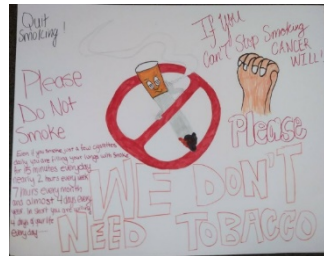 Quit
Smoking!
If You
Can't Stop Smoking
CANCER
WILL!
Please
Do Not
Smoke
Even if you smoke just a few cigarettes
daily you are filling your lungs with smoke
for 15 minutes everyday
nearly 2 hours every week
7 hours every month
and almost 4 days every
year. So don't you
4 days of your life
everyday
Please
WE DON'T
NEED TOBACCO